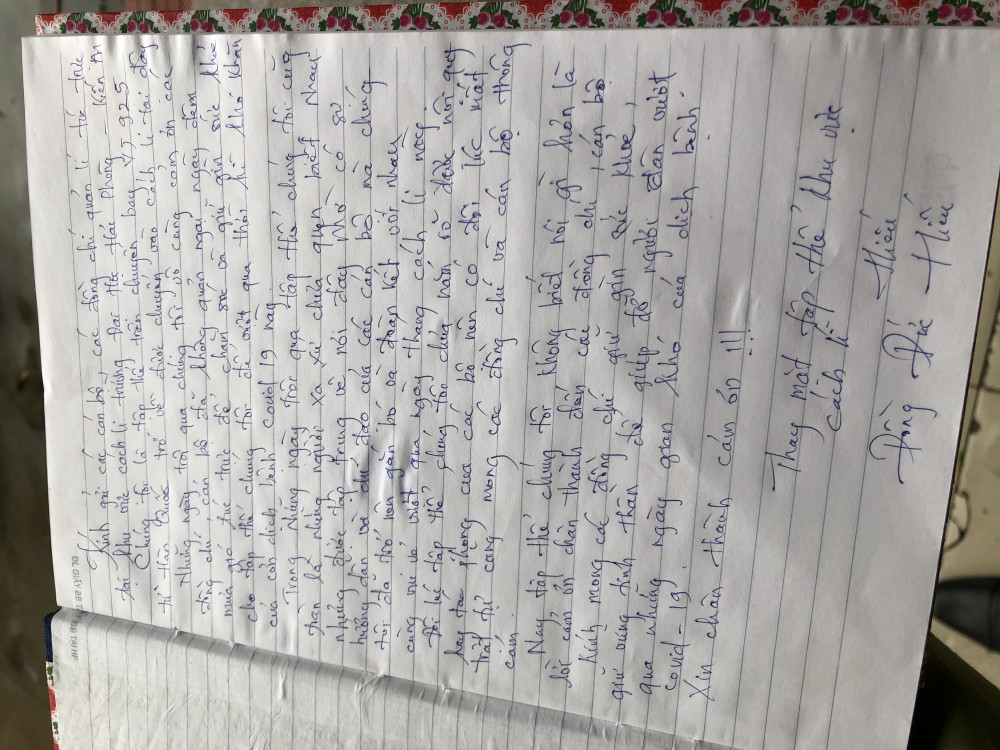 Kính gửi các cán bộ, các đồng chí quản lí túc trực
tại khu vực cách li trường Đại học Hải Phòng - Kiến An
Chúng tôi là tập thể trên chuyến bay VJ 925
từ Hàn Quốc trở về được chuyển vào cách li tại đây
Những ngày trôi qua chúng tôi vô cùng cảm ơn các
đồng chí, cán bộ đã không quản ngại ngày đêm
mưa gió túc trực để chăm sóc và giữ gìn sức khỏe
cho tập thể chúng tôi để vượt qua thời kì khó khăn
của cản dịch bệnh covid 19 này
Trong những ngày trôi qua tập thể chúng tôi cũng
toàn là những người xa xứ chưa quen biết nhau
nhưng được tập trung về nơi đây nhờ có sự
hướng dẫn và chỉ đạo của các cán bộ mà chúng
tôi đã trở nên gắn bó và đoàn kết với nhau
cùng vui vẻ vượt qua ngày tháng cách li này
Đôi lúc tập thể chúng tôi chưa nắm rõ được nội quy
hay tác phong của các cán bộ nên có đôi lúc mất
trật tự cũng mong các đồng chí và cán bộ thông
cảm.
Nay tập thể chúng tôi không biết nói gì hơn là
lời cảm ơn chân thành đến các đồng chí, cán bộ
Kính mong các đồng chí giữ gìn sức khỏe,
giữ vững tinh thần để giúp đỡ người dân vượt
qua những ngày gian khó của dịch bệnh
covid-19.
Xin chân thành cảm ơn !!!
Thay mặt tập thể khu vực
cách li
Hiếu
Đồng Đức Hiếu